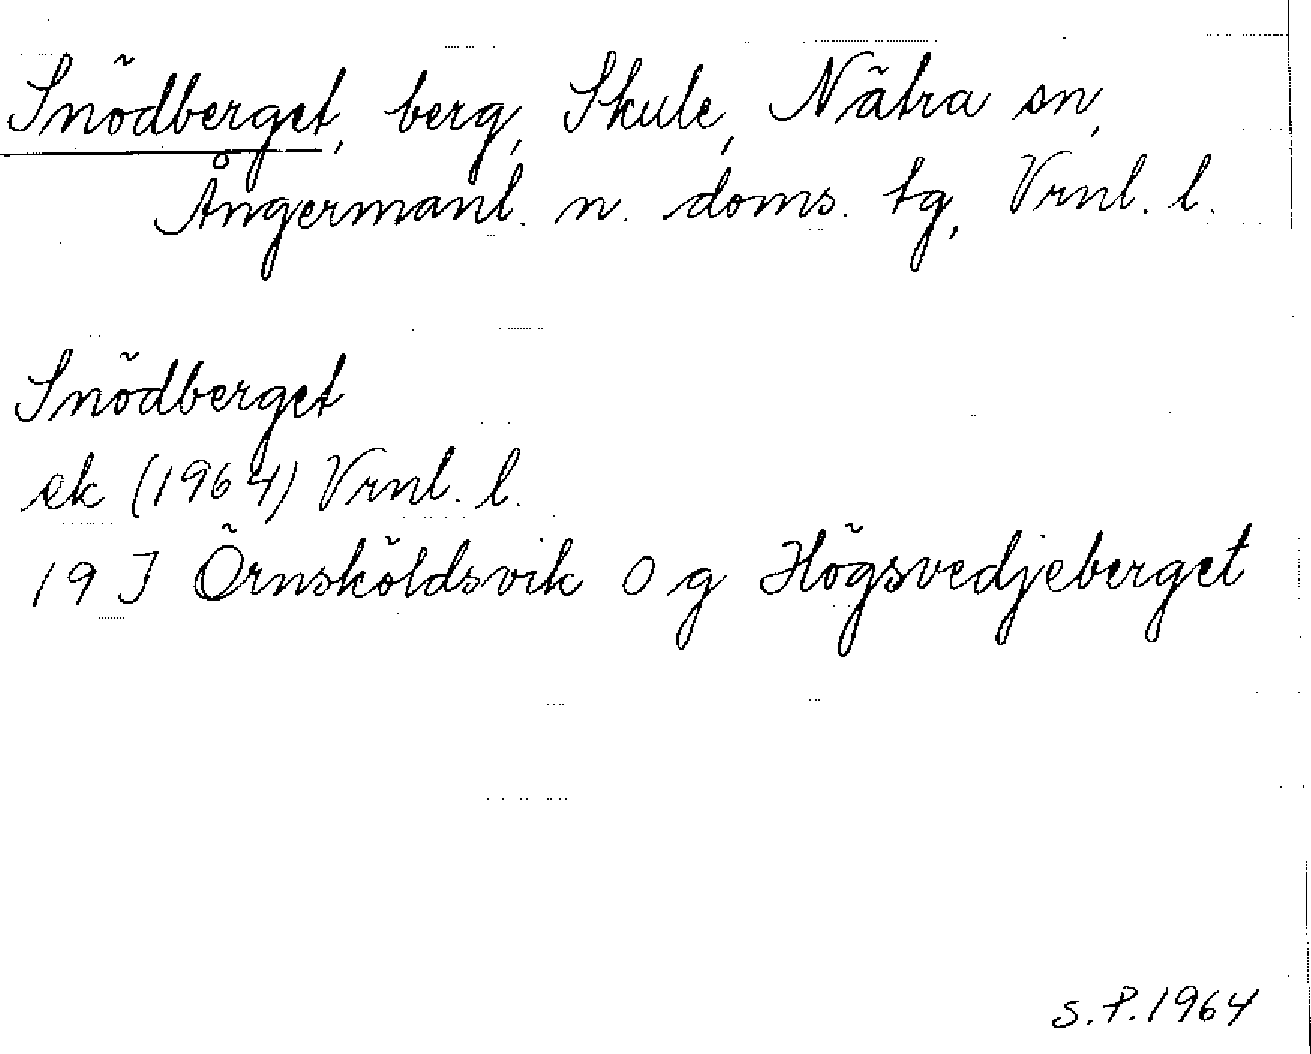 Snödberget, berg, Skule, Nätra sn,
Ångermanl. n. doms. tg, Vrnl. l.
Snödberget
ek (1964) Vrnl. l.
19 J Örnsköldsvik O g Högsvedjeberget
S.P.1964